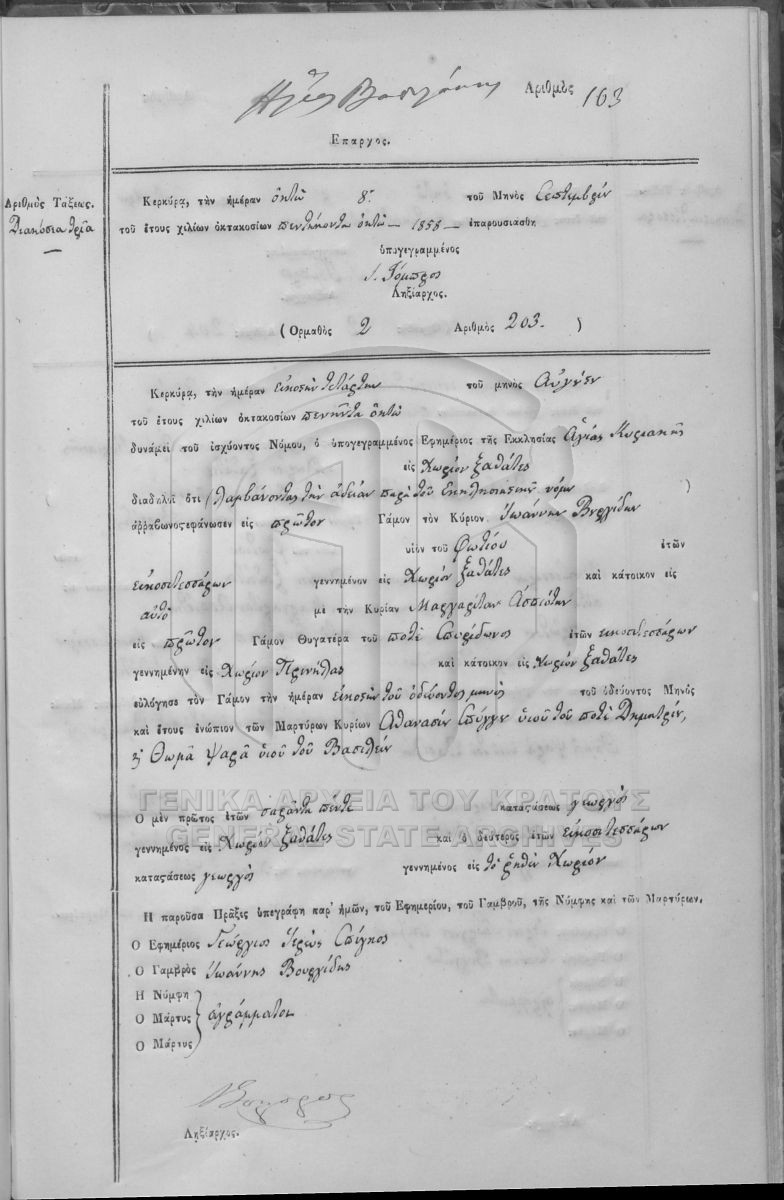 Αριθμὸς 163
Επαρχος.
Αριθμὸς Τάξεως.
Διακόσια τρία
Κερκύρα, τὴν ἡμέραν ὀκτὼ 8. τοῦ Μηνὸς Σεπτεμβρίου
τοῦ ἔτους χιλίων ὀκτακοσίων πεντήκοντα ὀκτὼ — 1858 — ἐπαρουσιάσθη
ὑπογεγραμμένος
Ληξίαρχος.
(Ορμαθὸς 2 Αριθμὸς 203. )
Κερκύρα, τὴν ἡμέραν εἰκοστὴν τετάρτην τοῦ μηνὸς Αὐγούστου
τοῦ ἔτους χιλίων ὀκτακοσίων πενῆντα ὀκτὼ
δυνάμει τοῦ ἰσχύοντος Νόμου, ὁ ὑπογεγραμμένος Εφημέριος τῆς Εκκλησίας Ἁγίας Κυριακῆς
εἰς Χωρίον Ξαθάτες
διαδηλοῖ ὅτι (λαμβάνοντας τὴν ἄδειαν παρὰ τοῦ Ἐκκλησιαστικοῦ νόμου )
ἀρραβωνοςεφάνωσεν εἰς πρῶτον Γάμον τὸν Κύριον Ἰωάννην Βουργίδην
υἱὸν τοῦ Φωτίου ἐτῶν
εἰκοσιτεσσάρων γεννημένον εἰς Χωρίον Ξαθάτες καὶ κάτοικον εἰς
αὐτὸ μὲ τὴν Κυρίαν Μαργαρίταν Ἀσπιώτην
εἰς πρῶτον Γάμον Θυγατέρα τοῦ ποτὲ Σπυρίδωνος ἐτῶν εἰκοσιτεσσάρων
γεννημένην εἰς Χωρίον Πρινήλας καὶ κάτοικον εἰς Χωρίον Ξαθάτες
εὐλόγησε τὸν Γάμον τὴν ἡμέραν εἰκοστὴν τοῦ ὁδεύοντος μηνὸς τοῦ ὁδεύοντος Μηνὸς
καὶ ἔτους ἐνώπιον τῶν Μαρτύρων Κυρίων Ἀθανασίου Σπίγγου υἱοῦ τοῦ ποτὲ Δημητρίου,
ϗ Θωμᾶ Ψαρᾶ υἱοῦ τοῦ Βασιλείου
ΓΕΝΙΚΑ ΑΡΧΕΙΑ ΤΟΥ ΚΡΑΤΟΥΣ
GENERAL STATE ARCHIVES
Ο μὲν πρῶτος ἐτῶν σαράντα πέντε καταςάσεως γεωργὸς
γεννημένος εἰς Χωρίον Ξαθάτες καὶ ὁ δεύτερος ἐτῶν εἰκοσιτεσσάρων
καταςάσεως γεωργὸς γεννημένος εἰς τὸ ῥηθὲν Χωρίον
Η παροῦσα Πρᾶξις ὑπεγράφη παρ' ἡμῶν, τοῦ Εφημερίου, τοῦ Γαμβροῦ, τῆς Νύμφης καὶ τῶν Μαρτύρων.
Ο Εφημέριος Γεώργιος Ἱερεὺς Σπίγκος
Ο Γαμβρὸς Ἰωάννης Βουργίδης
Η Νύμφη
Ο Μάρτυς ἀγράμματοι
Ο Μάρτυς
Ληξίαρχος.